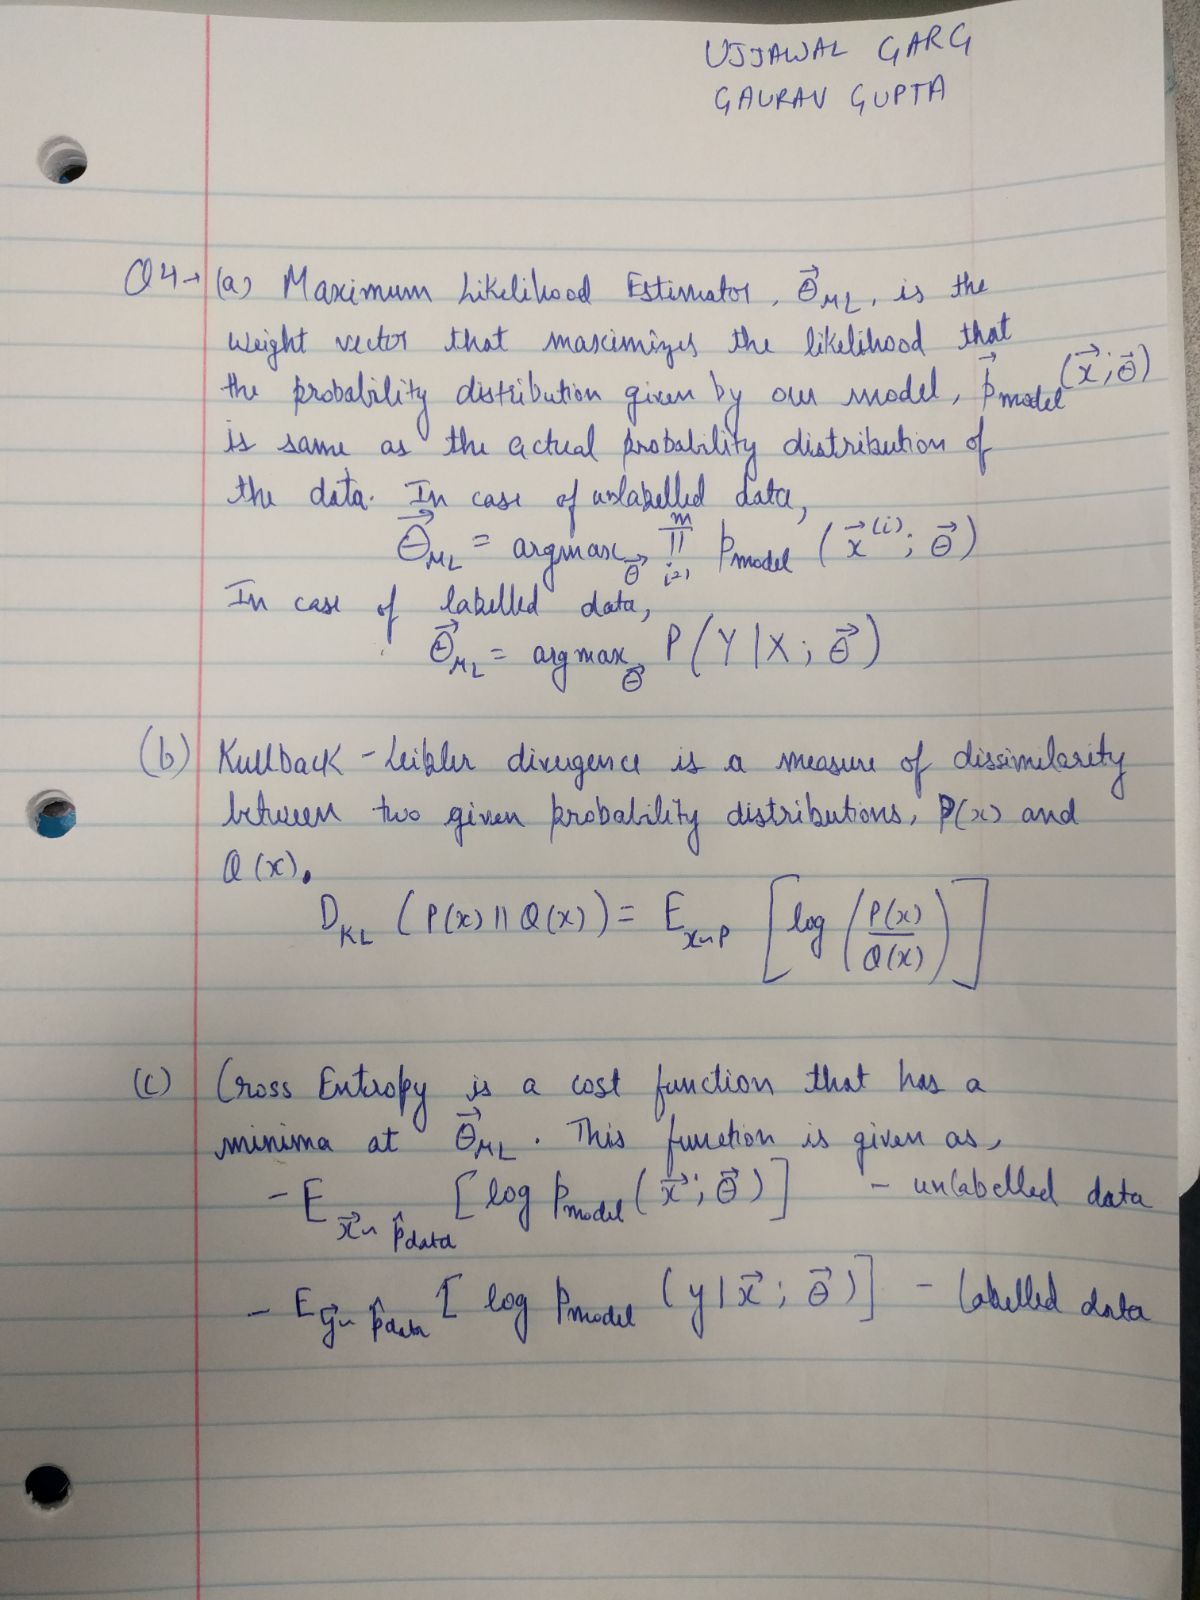 UJJAWAL GARG
GAURAV GUPTA
Q4→ (a) Maximum Likelihood Estimator, θ⃗_ML, is the
weight vector that maximizes the likelihood that
the probability distribution given by our model, p⃗_model (x⃗; θ⃗)
is same as the actual probability distribution of
the data. In case of unlabelled data,
θ⃗_ML = argmax_θ⃗ ∏_{i=1}^{m} p_model (x⃗^(i); θ⃗)
In case of labelled data,
θ⃗_ML = argmax_θ⃗ P(Y|X; θ⃗)
(b) Kullback-Leibler divergence is a measure of dissimilarity
between two given probability distributions, P(x) and
Q(x).
D_KL (P(x) || Q(x)) = E_{x~P} [log (P(x)/Q(x))]
(c) Cross Entropy is a cost function that has a
minima at θ⃗_ML. This function is given as,
- E_{x⃗~p̂data} [log p_model (x⃗; θ⃗)] - unlabelled data
- E_{y⃗~p̂data} [log p_model (y|x⃗; θ⃗)] - labelled data